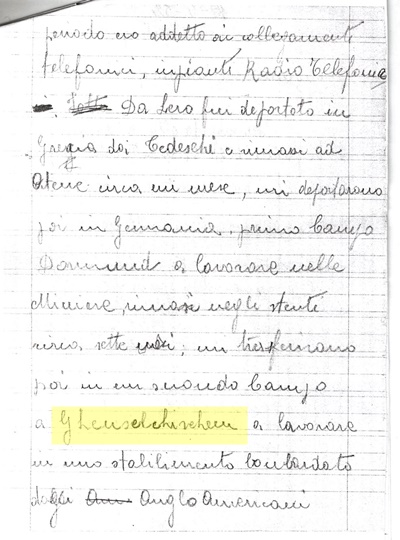 periodo ero addetto ai collegamenti
telefonici, inpianti Radio Telefonia
Da Lero fui deportato in
Grecia dai Tedeschi e rimasi ad
Atene circa un mese, mi deportarono
poi in Germania, primo Campo
Dormund a lavorare nelle
Miniere, rimasi negli stenti
circa sette mesi; mi trasferirono
poi in un secondo Campo
a Ghenselchischem a lavorare
in uno stabilimento bombardato
dagli Anglo Americani